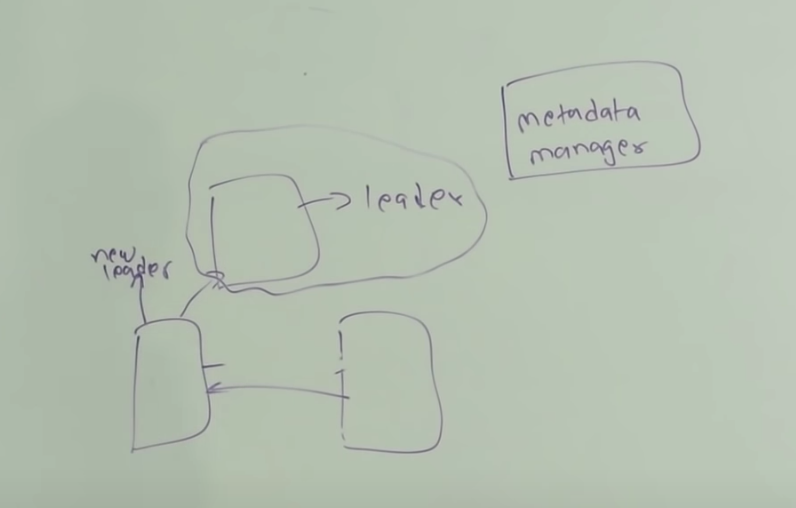 metadata
manager
leader
new
leader